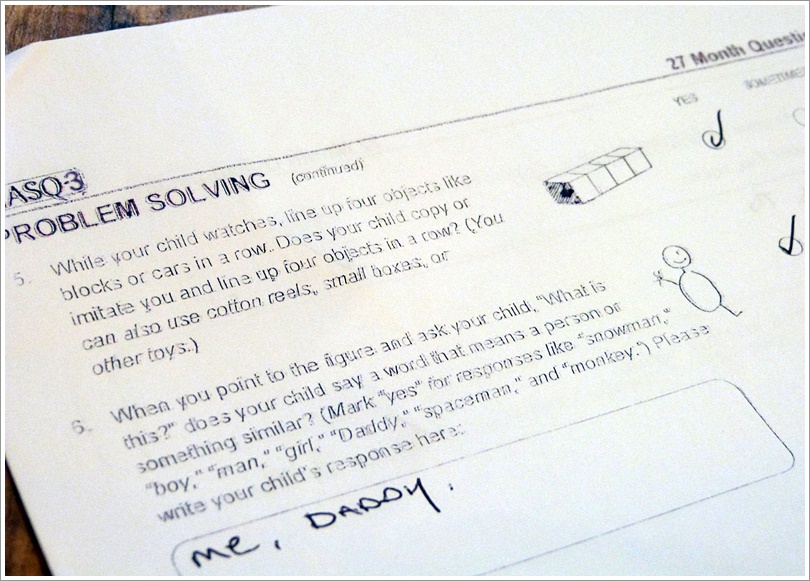 27 Month Questi
YES
SOMETIMES
ASQ-3
PROBLEM SOLVING (continued)
5. While your child watches, line up four objects like
blocks or cars in a row. Does your child copy or
imitate you and line up four objects in a row? (You
can also use cotton reels, small boxes, or
other toys.)
6. When you point to the figure and ask your child, "What is
this?" does your child say a word that means a person or
something similar? (Mark "yes" for responses like "snowman,"
"boy," "man," "girl," "Daddy," "spaceman," and "monkey.") Please
write your child's response here:
me, DADDY.